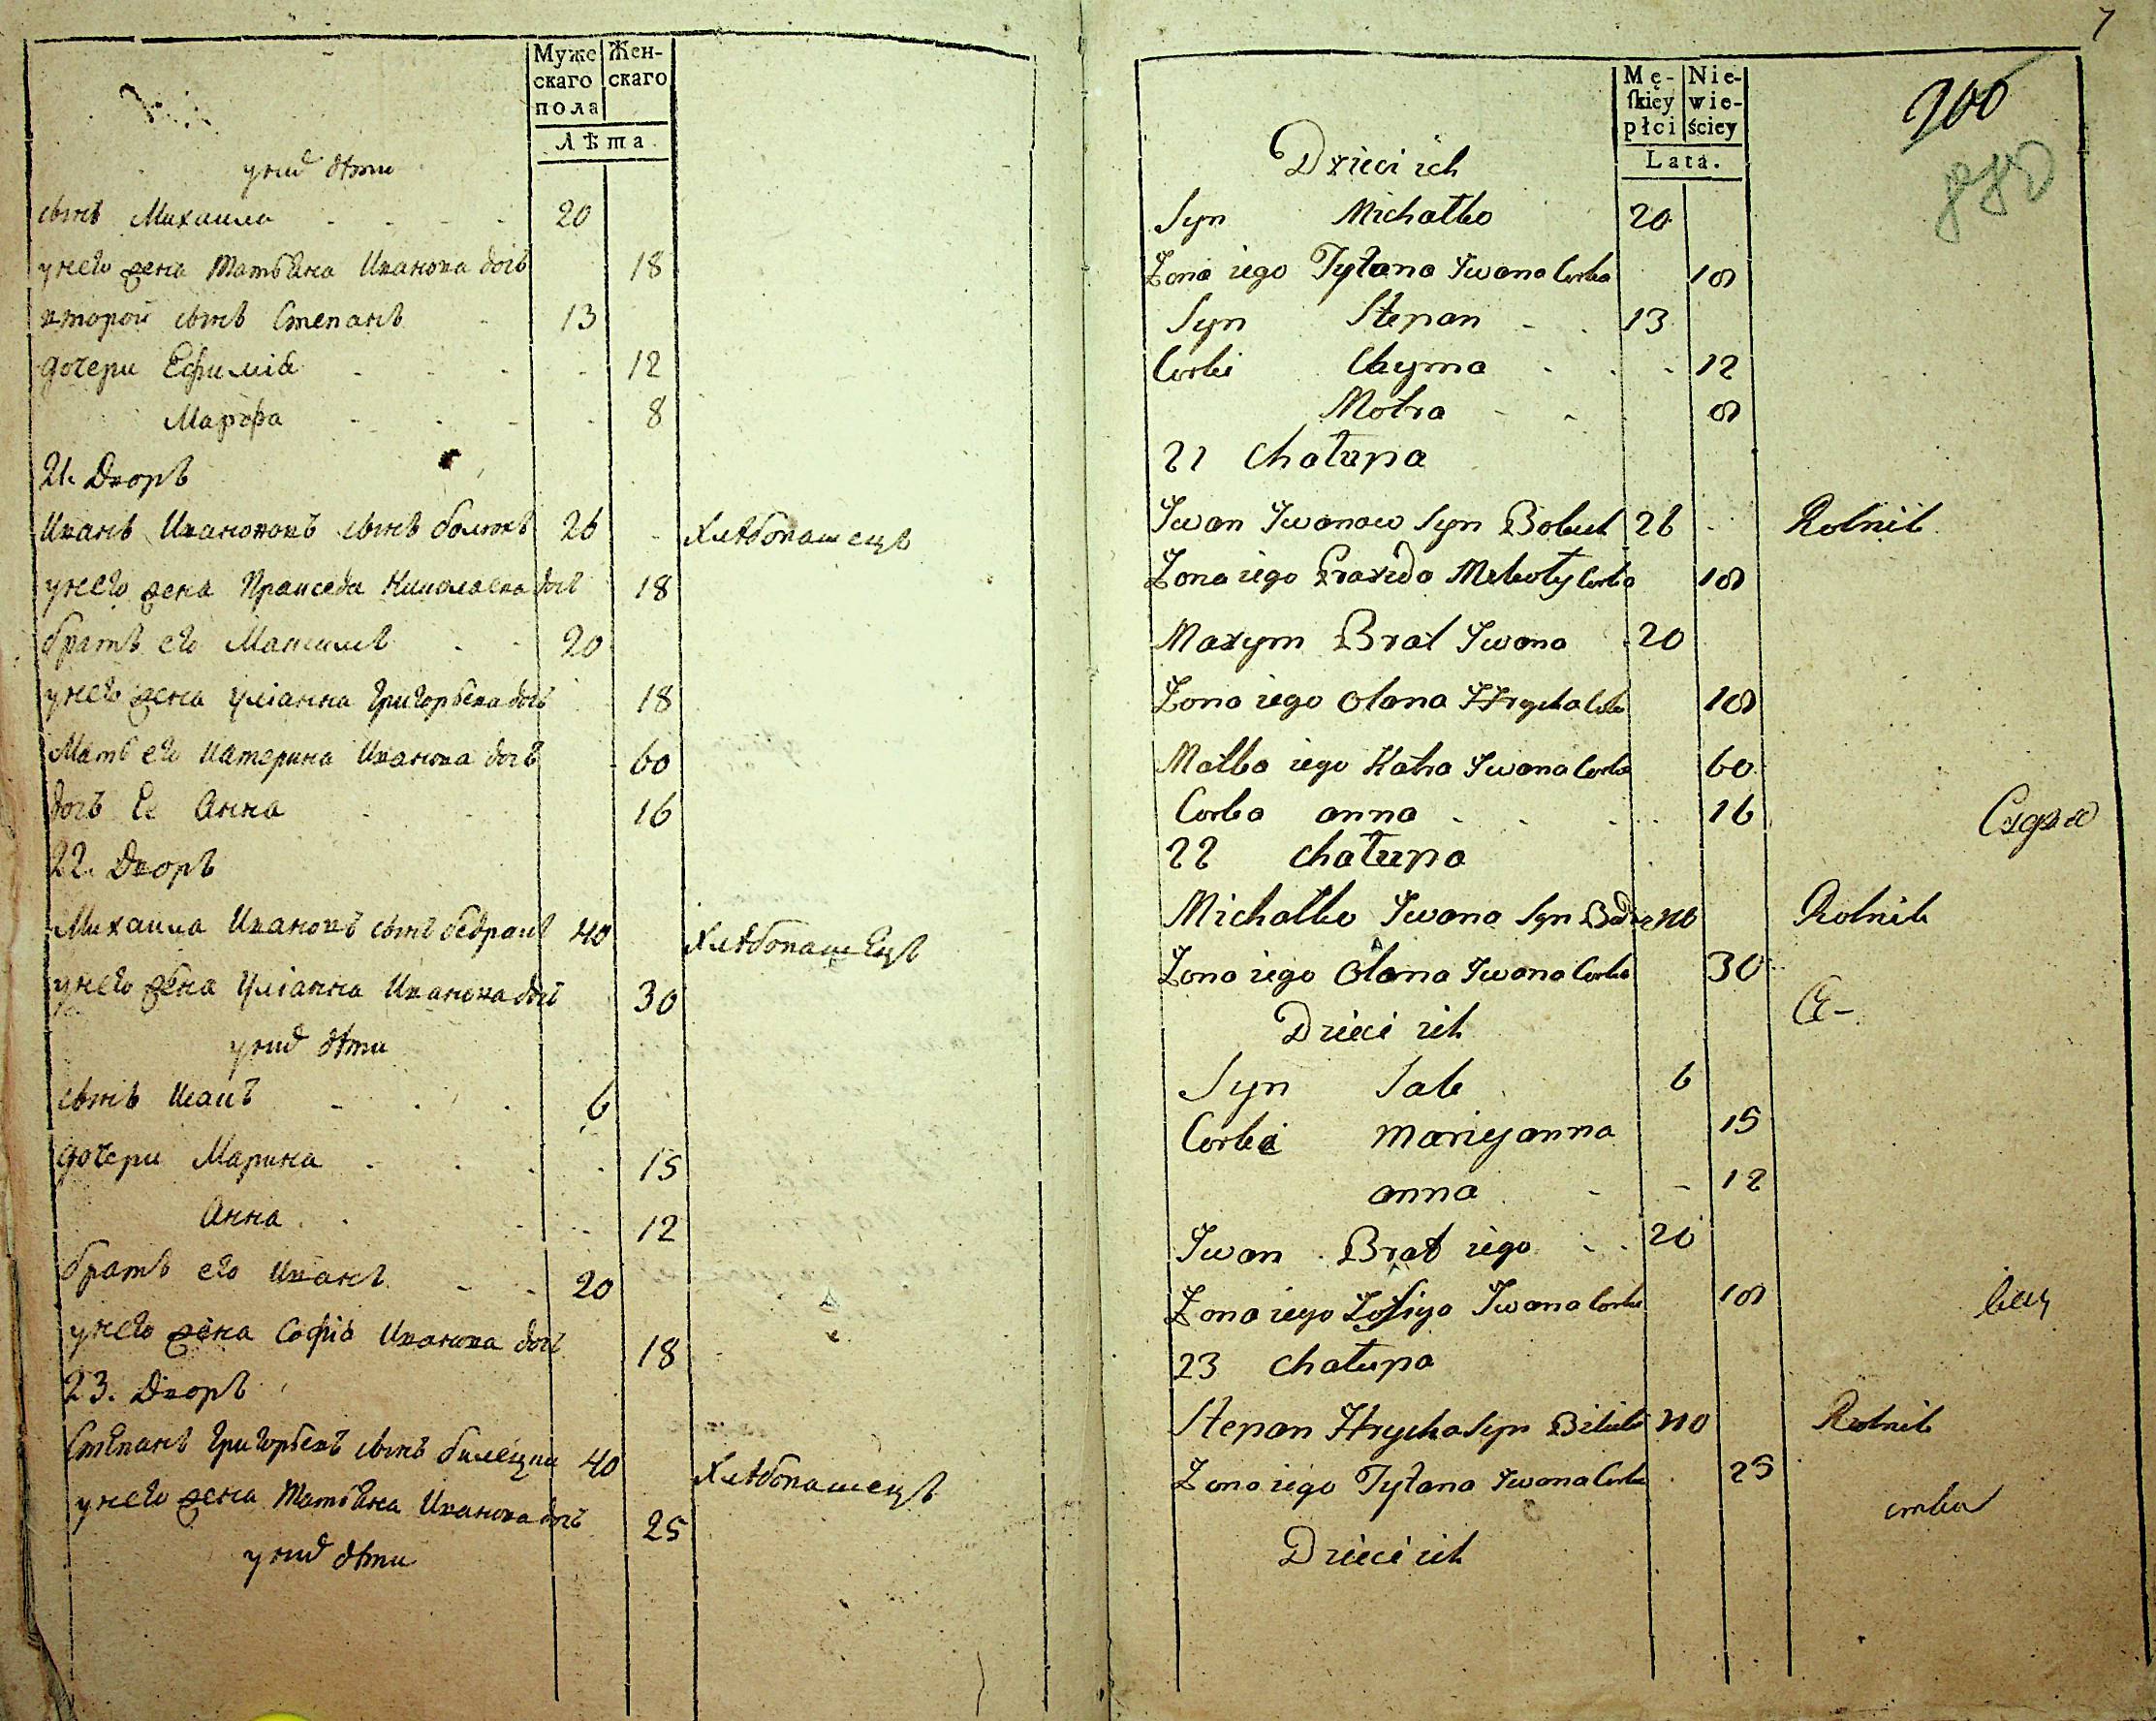 Муже
скаго
пола
Жен-
скаго
Лѣта
у них дѣти
сынъ Михаила 20
у него жена Татьяна Иванова дочь 18
второй сынъ Степанъ 13
дочери Ефимія 12
Марфа 8
21. Дворъ
Иванъ Ивановъ сынъ 26 Хлѣбопашецъ
у него жена Праиседа Николаева дочь 18
братъ его Максимъ 20
у него жена Уліанна Григорьева дочь 18
Мать его Катерина Иванова дочь 60
дочь Ее Анна 16
22. Дворъ
Михаила Ивановъ сынъ 40 Хлѣбопашецъ
у него жена Уліанна Иванова дочь 30
у них дѣти
сынъ Исакъ 6
дочери Марина 15
Анна 12
братъ его Иванъ 20
у него жена Софія Иванова дочь 18
23. Дворъ
Степанъ Григорьевъ сынъ билецки 40 Хлѣбопашецъ
у него жена Татьяна Иванова дочь 25
у них дѣти
7
Mę-
skiey
płci
Nie-
wie-
ściey
Lata.
Dzieci ich
Syn Michałko 20
Żona iego Tytana Iwana Corka 18
Syn Stepan 13
Corki Chyma 12
Motra 8
21 Chałupa
Iwan Iwanow Syn 26 Rolnik
Żona iego Praxeda Mekoły Corka 18
Maxym Brat Iwana 20
Żona iego Olana Hrycka Corka 18
Matka iego Katra Iwana Corka 60
Corka anna 16
22 chałupa
Michałko Iwana Syn 40 Rolnik
Żona iego Olana Iwana Corka 30
Dzieci ich
Syn Sak 6
Corki Maryanna 15
anna 12
Iwan Brat iego 20
Żona iego Zofiya Iwana Corka 18
23 chałupa
Stepan Hrycka Syn 40 Rolnik
Żona iego Tytana Iwana Corka 25
Dzieci ich